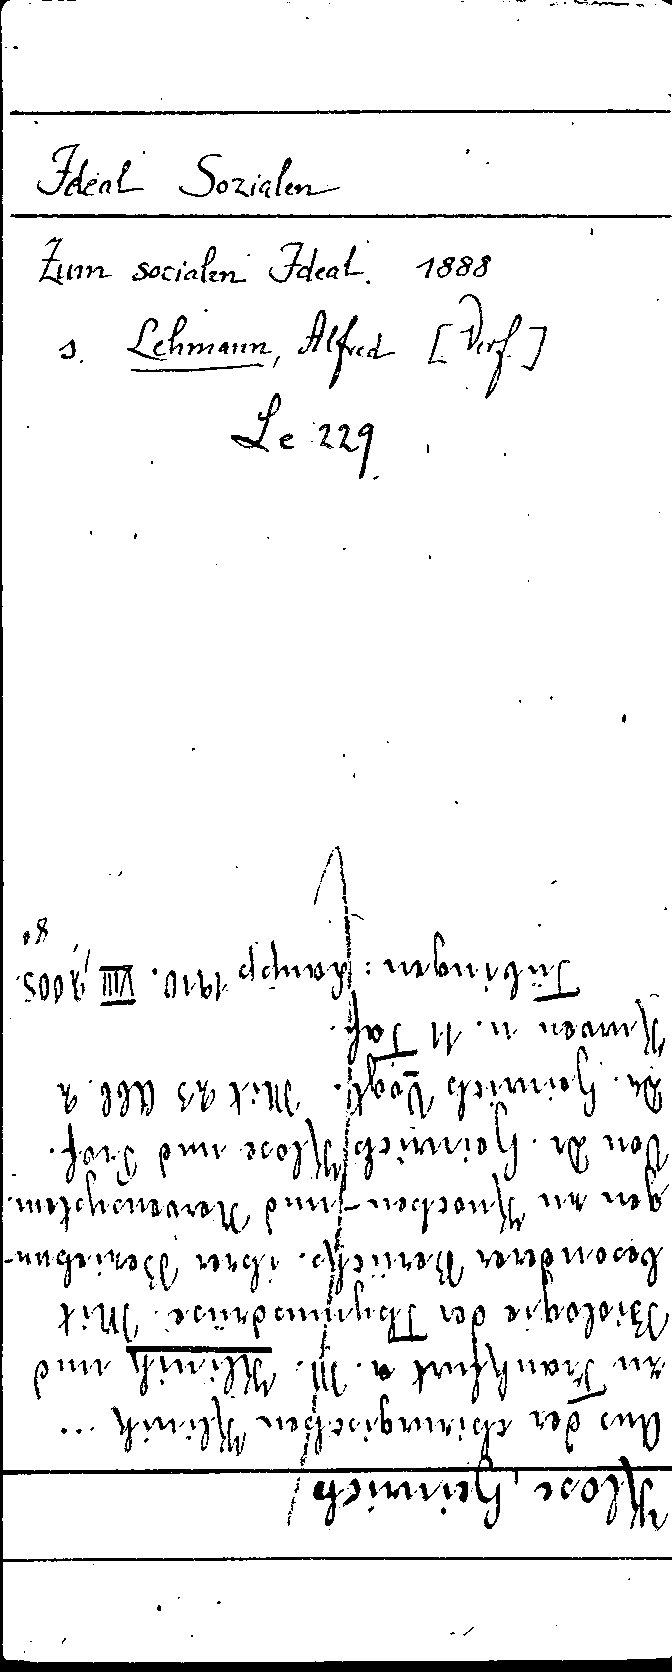 Ideal Sozialen
Zum socialen Ideal. 1888
s. Lehmann, Alfred [Verf.]
Le 229
Klose, Heinrich
Aus der chirurgischen Klinik ...
zu Frankfurt a. M. Klinik und
Biologie der Thymusdrüse. Mit
besonderer Berücks. ihrer Beziehun-
gen zu Knochen- und Nervensystem.
Von Dr. Heinrich Klose und Prof.
Dr. Heinrich Vogt. Mit 23 Abb. 2
Kurven u. 11 Taf.
Tübingen: Laupp 1910. VIII, 200S.
8°